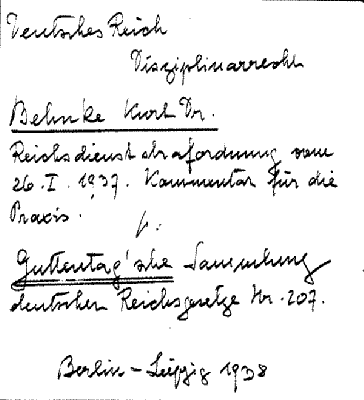 Deutsches Reich
Disziplinarrecht
Behnke Kurt Dr.
Reichsdienststrafordnung vom
26. I. 1937. Kommentar für die
Praxis.
Guttentag'sche Sammlung
deutscher Reichsgesetze Nr. 207.
Berlin - Leipzig 1938